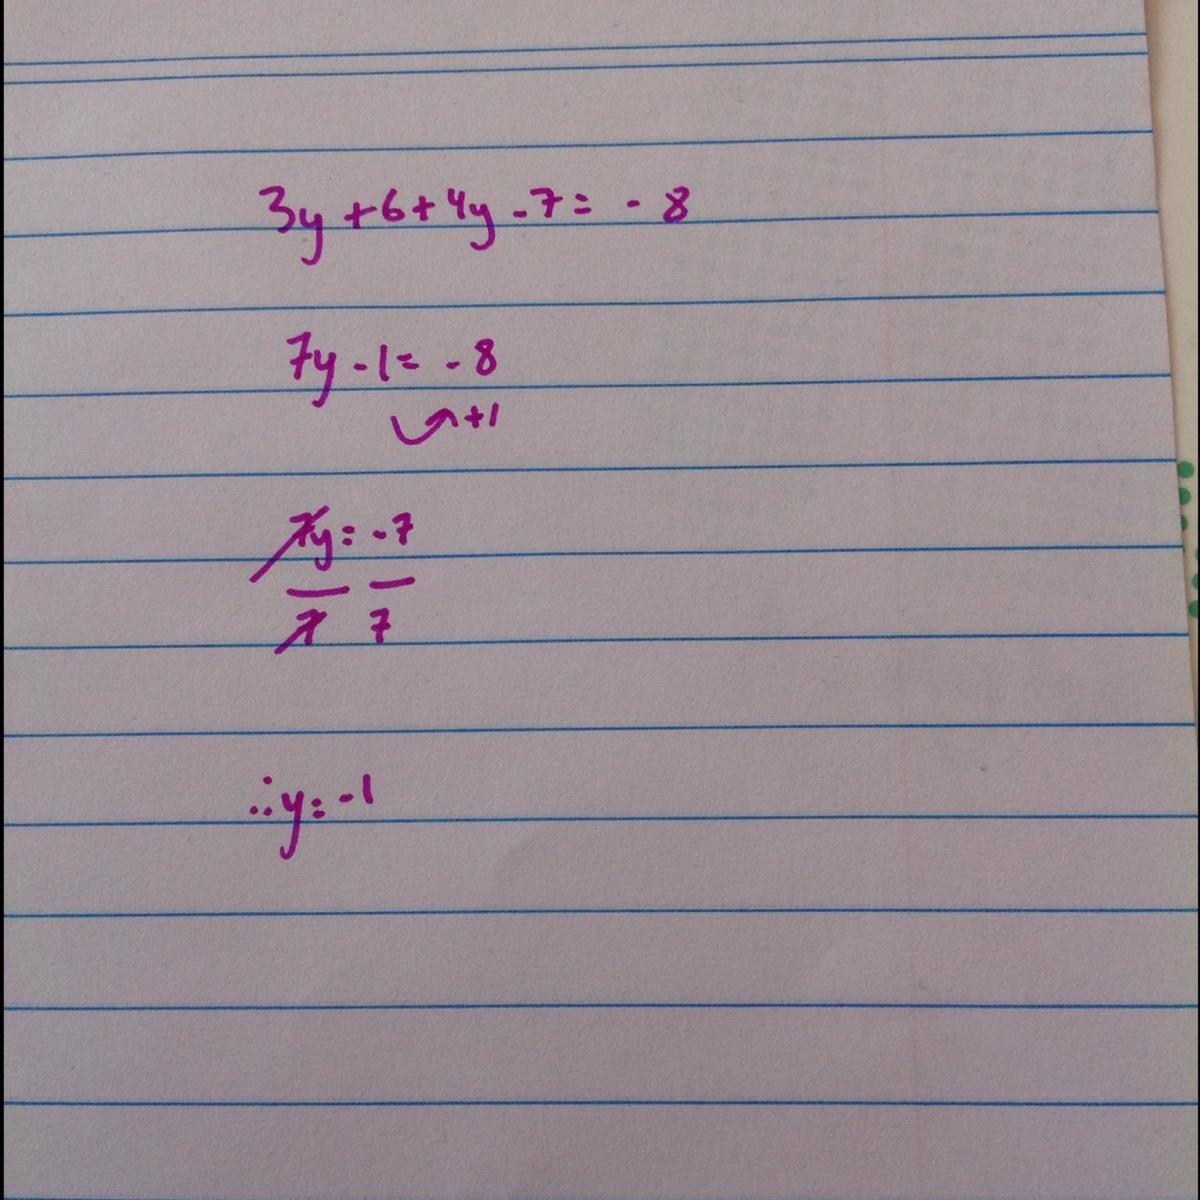 3y +6+4y -7= - 8
7y -1= - 8
+1
7y= -7
7 7
∴y= -1